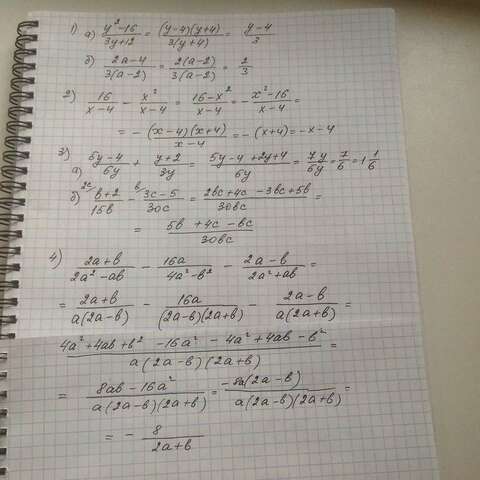 1) а) \frac{y^2-16}{3y+12} = \frac{(y-4)(y+4)}{3(y+4)} = \frac{y-4}{3}
б) \frac{2a-4}{3(a-2)} = \frac{2(a-2)}{3(a-2)} = \frac{2}{3}
2) \frac{16}{x-4} - \frac{x^2}{x-4} = \frac{16-x^2}{x-4} = -\frac{x^2-16}{x-4} =
= -\frac{(x-4)(x+4)}{x-4} = -(x+4) = -x-4
3) а) \frac{5y-4}{6y} + \frac{y+2}{3y} = \frac{5y-4+2y+4}{6y} = \frac{7y}{6y} = \frac{7}{6} = 1\frac{1}{6}
б) ^{2c} \frac{b+2}{15b} - ^{b} \frac{3c-5}{30c} = \frac{2bc+4c-3bc+5b}{30bc} =
= \frac{5b+4c-bc}{30bc}
4) \frac{2a+b}{2a^2-ab} - \frac{16a}{4a^2-b^2} - \frac{2a-b}{2a^2+ab} =
= \frac{2a+b}{a(2a-b)} - \frac{16a}{(2a-b)(2a+b)} - \frac{2a-b}{a(2a+b)} =
\frac{4a^2+4ab+b^2-16a^2-4a^2+4ab-b^2}{a(2a-b)(2a+b)} =
= \frac{8ab-16a^2}{a(2a-b)(2a+b)} = \frac{-8a(2a-b)}{a(2a-b)(2a+b)} =
= -\frac{8}{2a+b}